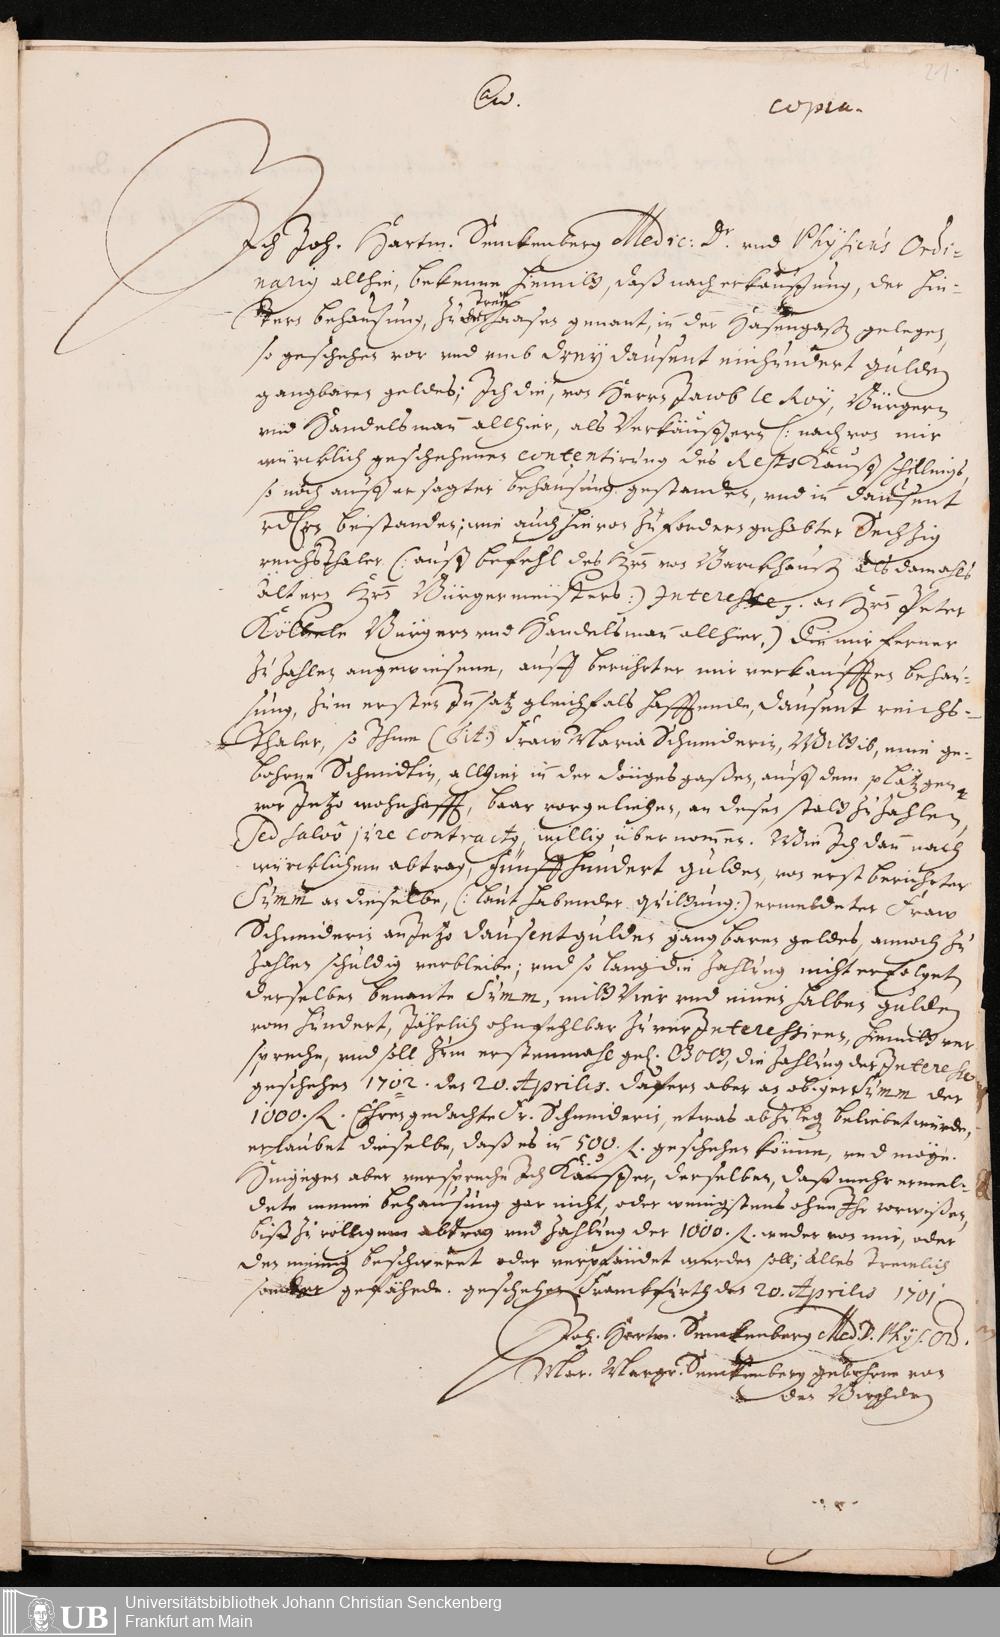 21.
copia.
Ich Joh. Hartm. Senckenberg Medic: Dr. vnd Physicus Ordi-
narig allhie, bekenne hiemitt, daß nach erkauffung, der hin-
tern behausung, zu drey haasen genant, in der Hasengaß gelegen,
so geschehen vor vnd vmb drey dausent einhundert gulden
gangbaren geldes; Ich die, von Herrn Jacob le Roy, Bürgern
vnd Handelsmañ allhier, als Verkäuffern (: nach von mir
würcklich geschehener contentirung des Rests Kauff schillings,
so noch auff ersagter behausung gestanden, vnd in dausent
bestanden; wie auch hievon zu fordern gehabter Sechzig
reichsthaler (: auß befehl des Hrn von Barckhauß als damahls
ältern Hrn Bürgermeisters :) Interesse, an Hrn Peter
Kölbele Bürgern vnd Handelsmañ allhier,) die mir ferner
zu zahlen angewiesene, auff berührter mir verkaufften behau-
sung, zum ersten Insatz gleichfals hafftende, dausent reichs-
Thaler, so Ihme (tit.) Fraw Maria Schneiderin, Wittib, eine ge-
bohrne Schmidtin, allhier in der Döngesgaßen, auff dem plätzgen
vor Jetzo wohnhafft, baar vorgeliehen, an dessen statt zu zahlen,
Sed salvo jure contractg, willig übernom̃en. Wie Ich dañ nach
würcklichem abtrag, fünffhundert gulden, von erst berührter
Sum̃ an dieselbe, (: laut habender quittung :) ermeldeter Fraw
Schneiderin anJetzo dausent gulden gangbaren geldes, annoch zu
zahlen schuldig verbleibe; vnd so lang die Zahlung nicht erfolget,
derselben benante Sum̃, mitt Vier vnd einen halben gulden
vom hundert, Jährlich ohnfehlbar zu verInteressiren, hiemitt ver
spreche, vnd soll zum erstenmahl gel. Gott, die Zahlung der Interesse
geschehen 1702. den 20. Aprilis. dafern aber an obiger Sum̃ der
1000. fl. Ehrengedachte Fr. Schneiderin, etwas abzuleg beliebet würde,
erlaubet dieselbe, daß es in 500. fl. geschehen könne, vnd möge.
Hingegen aber verspreche Ich Käuffer, derselben, daß mehr ermel-
dete meine behausung gar nicht, oder wenigstens ohne Ihr vorwißen,
biß zu völligem abtrag vnd Zahlung der 1000. fl. weder von mir, oder
den meinig beschweret oder verpfändet werden soll; Alles Trewlich
sonder gefährde. geschehen Franckfurth den 20. Aprilis 1701
Joh. Hartm. Senckenberg Med. D. Phys. Ord.
Mar. Margr. Senckenberg gebohrne von
den Birghden
UB
Universitätsbibliothek Johann Christian Senckenberg
Frankfurt am Main